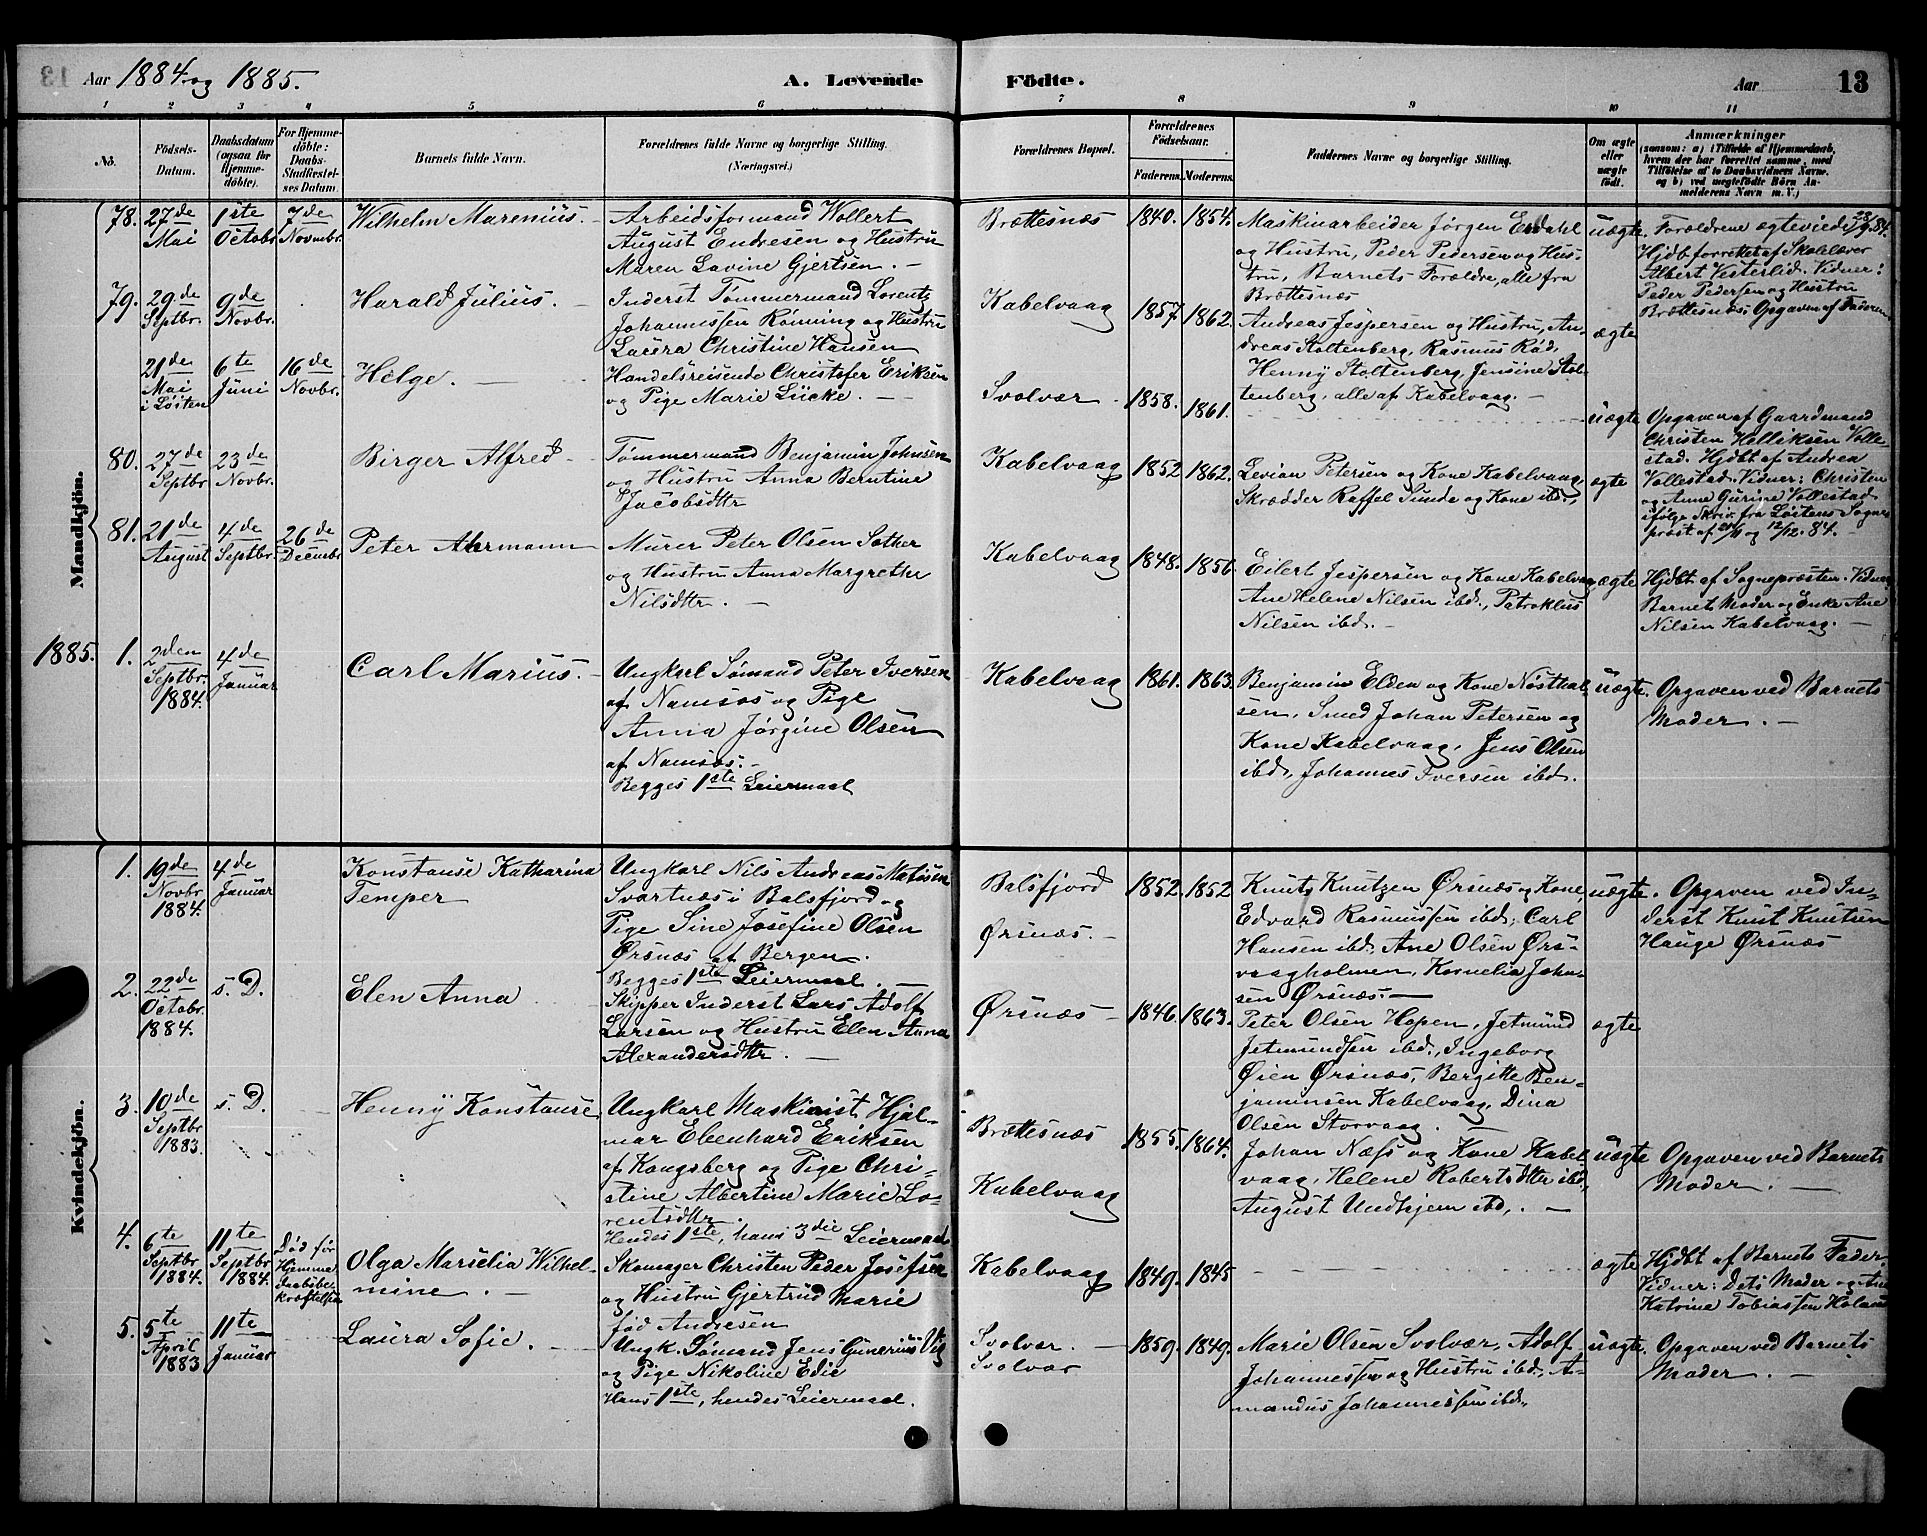 Aar 1884 og 1885.
A. Levende
Födte.
Aar
13
1
2
3
4
5
6
7
8
9
10
11
No.
Födsels-
Datum.
Daabsdatum
(ogsaa for
Hjemme-
döbte).
For Hjemme-
döbte:
Daabs-
Stadfæstel-
ses Datum.
Barnets fulde Navn.
Forældrenes fulde Navne og borgerlige Stilling.
(Næringsvei.)
Forældrenes Bopæl.
Forældrenes
Födselsaar.
Faderens.
Moderens.
Faddernes Navne og borgerlige Stilling.
Om ægte
eller
uægte
födt.
Anmærkninger
(saasom: a) i Tilfælde af Hjemmedaab,
hvem der har forrettet samme, med
Tilföielse af to Daabsvidners Navne.
og b) ved uægtefödte Börn An-
melderens Navn m. V.)
Mandkjön.
78.
27de
Mai
1ste
Octobr
7de
Novmbr.
Wilhelm Marenius.
Arbeidsformand Wollert
August Endresen og Hustru
Maren Lavine Gjertsen.
Brættesnæs
1840.
1854.
Maskinarbeider Jørgen Erdahl
og Hustru, Peder Pedersen og Hus-
tru, Barnets Forældre, alle fra
Brættesnæs
uægte.
Forældrene ægteviede 28/9.84.
Hjdb. forrettet af Skolelærer
Albert Vesterlid. Vidner:
Peder Pedersen og Hustru
Brættesnæs. Opgaven af Faderen
79.
29de
Septbr.
9de
Novbr.
Harald Julius.
Inderst Tømmermand Lorentz
Johannissen Rønning og Hustru
Laura Christine Hansen
Kabelvaag
1857.
1862.
Andreas Jespersen og Hustru, An-
dreas Stoltenberg, Rasmus Rød,
Henny Stoltenberg, Jensine Stol-
tenberg, alle af Kabelvaag.
ægte
21de
Mai
i Løiten
6te
Juni
16de
Novbr.
Helge.
Handelsreisende Christofer Eriksen
og Pige Marie Lücke.
Svolvær
1858.
1861.
uægte
Opgaven af Gaardmand
Christen Helliksen Volle-
stad. Hjdbt af Andrea
Vollestad. Vidner: Christen
og Anne Gurine Vollestad
ifølge Skriv. fra Løitens Sogne-
præst af og 12/12.84.
80.
27de
Septbr
23de
Novbr.
Birger Alfred
Tømmermand Benjamin Johnsen
og Hustru Anna Berntine
Jacobsdtr
Kabelvaag
1852
1862.
Levian Petersen og Kone Kabelvaag
Skrædder Raffel Sunde og Kone ibd.
ægte
81.
21de
August
4de
Septbr.
26de
Decmbr
Peter Ahrmann
Murer Peter Olsen Sother
og Hustru Anna Margrethe
Nilsdtr.
Kabelvaag
1848.
1856.
Eilert Jespersen og Kone Kabelvaag
Ane Helene Nilsen ibd., Patroklus
Nilsen ibd.
ægte
Hjdbt. af Sognepræsten. Vidner
Barnets Moder og Enke Ane
Nilsen Kabelvaag.
1885.
1.
2den
Septbr.
1884.
4de
Januar
Carl Marius.
Ungkarl Sømand Peter Iversen
af Namsos og Pige
Anna Jørgine Olsen
af Namsos.
Begges 1ste Leiermaal
Kabelvaag
1861.
1863.
Benjamin Elden og Kone Nøsthal-
sen, Smed Johan Petersen og
Kone Kabelvaag, Jens Olsen
ibd, Johannes Iversen ibd.
uægte.
Opgaven ved Barnets
Moder.
Kvindekjön.
1.
19de
Novbr
1884.
4de
Januar
Konstanse Katharina
Temper
Ungkarl Nils Andreas Matisen
Svartnæs i Balsfjord og
Pige Sine Josefine Olsen
Ørsnæs af Bergen.
Begges 1ste Leiermaal.
Balsfjord
Ørsnæs.
1852.
1852
Knut Knutzen Ørsnæs og Kone,
Edvard Rasmussen ibd; Carl
Hansen ibd. Ane Olsen Ørs-
vaagholmen, Kornelia Johan-
sen Ørsnæs.
uægte.
Opgaven ved In-
derst Knut Knutsen
Hauge Ørsnæs
2.
22de
Octobr.
1884.
s. D.
Elen Anna
Skipper Inderst Lars Adolf
Larsen og Hustru Elen Anna
Alexandersdtr.
Ørsnæs
1846.
1863.
Peter Olsen Hopen, Jetmund
Jetmundsen ibd., Ingeborg
Øien Ørsnæs, Bergitte Ben-
jaminsen Kabelvaag, Dina
Olsen Storvaag.
ægte
3.
10de
Septbr
1883.
s. D.
Henny Konstanse
Ungkarl Maskinist Hjal-
mar Ebenhard Eriksen
af Kongsberg og Pige Chri-
stine Albertine Marie Lo-
rentsdtr.
Hendes 1ste, hans 3die Leiermaal
Brættesnæs
Kabelvaag
1855.
1864.
Johan Næss og Kone Kabel-
vaag, Helene Robertsdtr ibd,
August Undhjem ibd,.
uægte
Opgaven ved Barnets
Moder.
4.
6te
Septbr
1884.
11te
Septbr
1884.
Død før
Hjemme-
daabsbe-
kræftelsen
Olga Marselia Wilhel-
mine.
Skomager Christen Peder Josefsen
og Hustru Gjertrud Marie
fød Andresen
Kabelvaag
1849.
1845
ægte
Hjdbt af Barnets Fader.
Vidner: Dets Moder og
Katrine Tobiassen
5.
5te
April
1883
11te
Januar
Laura Sofie.
Ungk. Sømand Jens Gunerius Vig
og Pige Nikoline Edie
Hans 1ste, hendes Leiermaal.
Svolvær.
Svolvær
1859.
1849.
Marie Olsen Svolvær, Adolf
Johannessen og Hustru ibd, A-
mandus Johannessen ibd,
uægte.
Opgaven ved Barnets
Moder.